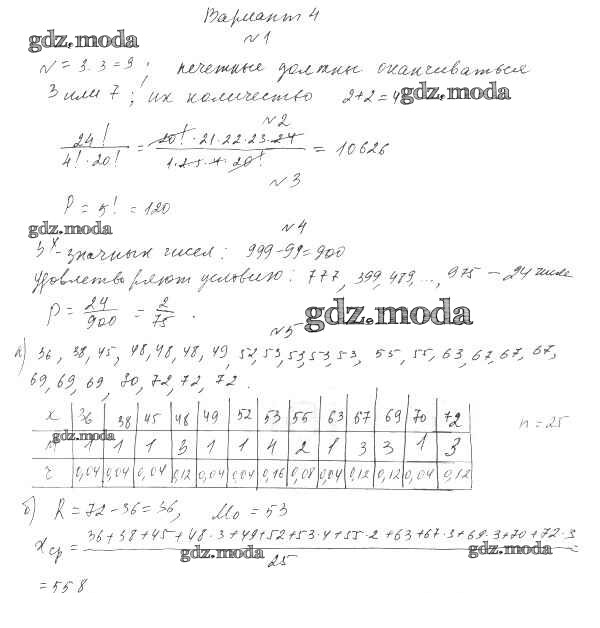 Вариант 4
№1
gdz.moda
N = 3·3 = 9; нечетные должны оканчиваться
3 или 7; их количество 2+2=4 gdz.moda
№2
24! / 4!·20! = 20!·21·22·23·24 / 1·2·3·4·20! = 10626
№3
P = 5! = 120
gdz.moda
№4
3х-значных чисел: 999-99=900
удовлетворяют условию: 777, 399, 489, ..., 975 – 24 числа
P = 24/900 = 2/75. gdz.moda
№5
а) 36, 38, 45, 48, 48, 48, 49, 52, 53, 53, 53, 53, 55, 55, 63, 67, 67, 67,
69, 69, 69, 70, 72, 72, 72.
x 36 38 45 48 49 52 53 55 63 67 69 70 72 n = 25
gdz.moda
1 1 1 3 1 1 4 2 1 3 3 1 3
r 0,04 0,04 0,04 0,12 0,04 0,04 0,16 0,08 0,04 0,12 0,12 0,04 0,12
б) R = 72-36=36, Mo = 53
xср = 36+38+45+48·3+49+52+53·4+55·2+63+67·3+69·3+70+72·3 / 25
gdz.moda gdz.moda
= 55 8